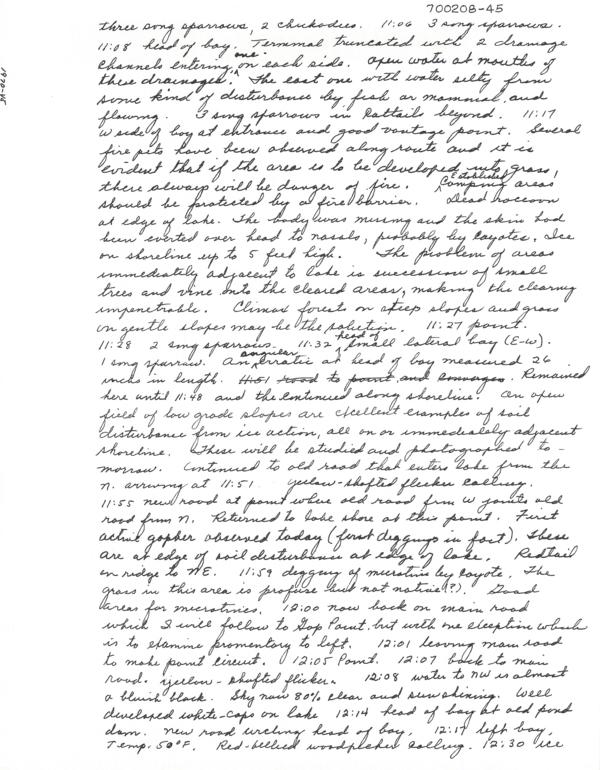 700208-45
three song sparrows, 2 chickadees. 11:06 3 song sparrows.
11:08 head of bay. Terminal truncated with 2 drainage
channels entering, one on each side. Open water at mouths of
these drainages. The east one with water silty from
some kind of disturbance by fish or mammal and
flowing. 3 song sparrows in Cattails beyond. 11:17
W side of bay at entrance and good vantage point. Several
fire pits have been observed along route and it is
evident that if the area is to be developed into grass,
there always will be danger of fire. Established Camping areas
should be protected by a fire barrier. Dead raccoon
at edge of lake. The body was missing and the skin had
been everted over head to nasals, probably by coyotes. Ice
on shoreline up to 5 feet high. The problem of areas
immediately adjacent to lake is succession of small
trees and vine onto the cleared areas, making the clearing
impenetrable. Climax forests on steep slopes and grass
on gentle slopes may be the solution. 11:27 point.
11:28 2 song sparrows. 11:32 head of small lateral bay (E-W).
1 song sparrow. An angular erratic at head of bay measured 26
inches in length. 11:51 road to point and. Remained
here until 11:48 and the continued along shoreline. An open
field of low grade slopes are excellent examples of soil
disturbance from ice action, all on or immediately adjacent
shoreline. These will be studied and photographed to-
morrow. Continued to old road that enters lake from the
N. arriving at 11:51. yellow-shafted flicker calling.
11:55 new road at point where old road from W joints old
road from N. Returned to lake shore at this point. First
active gopher observed today (first diggings in fact). These
are at edge of soil disturbance at edge of lake. Redtail
on ridge to NE. 11:59 digging of microtine by coyote. The
grass in this area is profuse but not native (?). Good
areas for microtines. 12:00 now back on main road
which I will follow to Gap Point, but with one exception which
is to examine promontory to left. 12:01 leaving main road
to make point circuit. 12:05 Point. 12:07 back to main
road. yellow-shafted flicker. 12:08 water to NW is almost
a bluish black. Sky now 80% clear and sun shining. Well
developed white-caps on lake 12:14 head of bay at old pond
dam. New road circling head of bay. 12:17 left bay.
Temp. 50°F. Red-bellied woodpecker calling. 12:30 ice